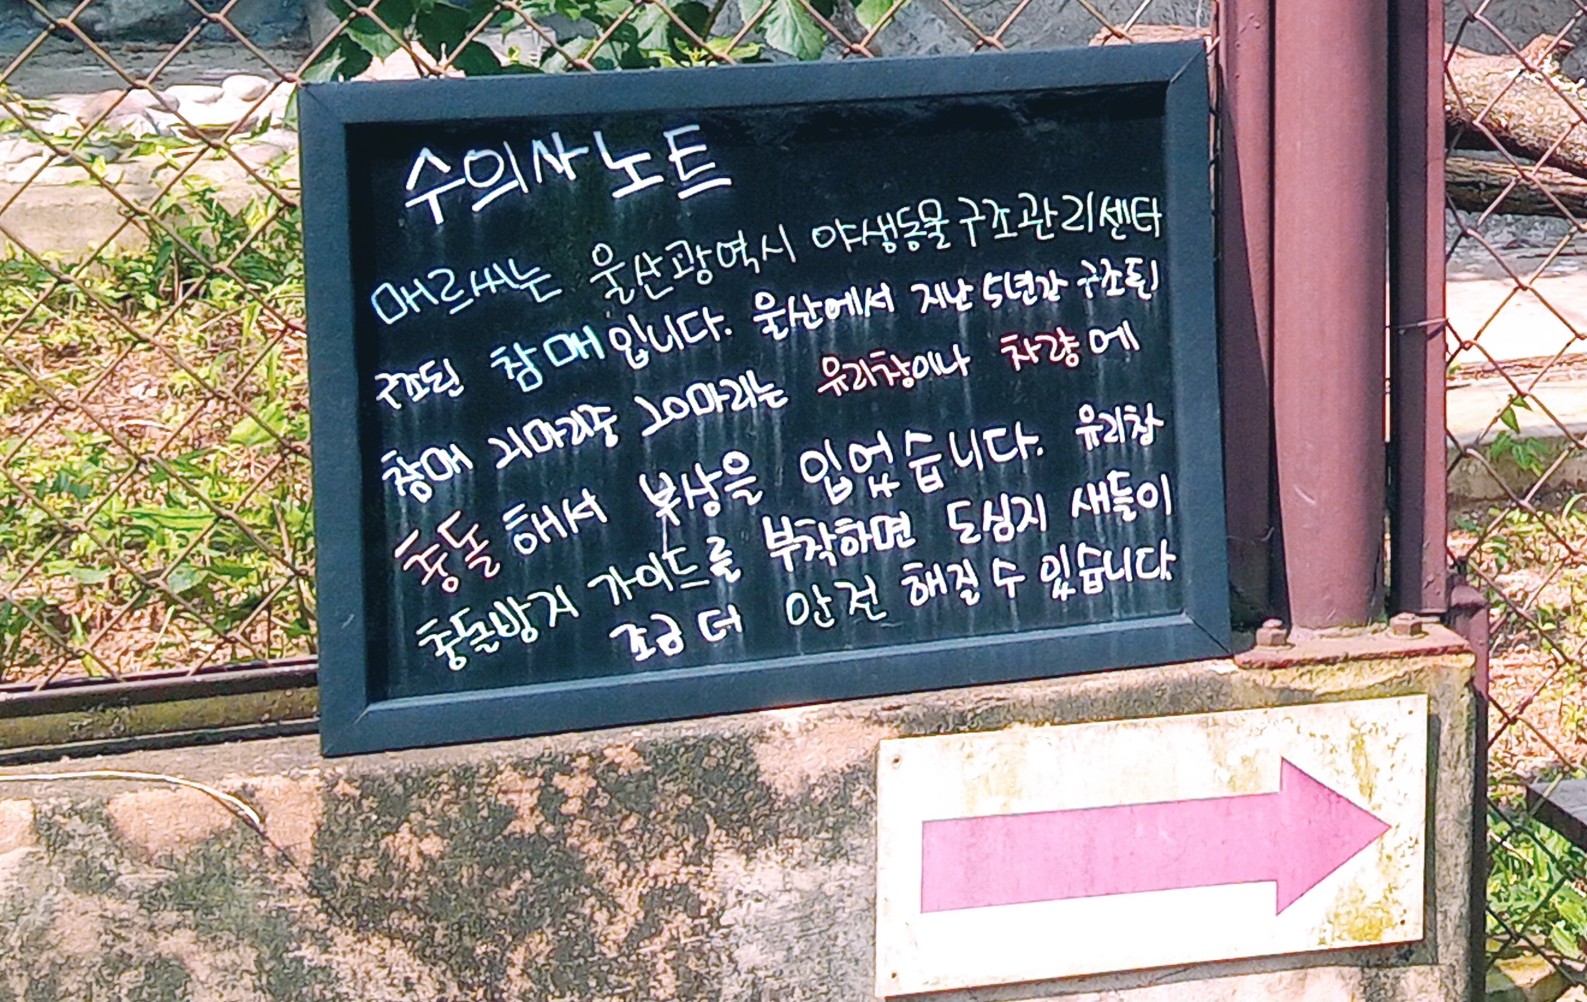 수의사노트
매르씨는 울산광역시 야생동물구조관리센터
구조된 참매입니다. 울산에서 지난 5년간 구조된
참매 21마리중 20마리는 유리창이나 차량에
충돌해서 부상을 입었습니다. 유리창
충돌방지 가이드를 부착하면 도심지 새들이
조금 더 안전해질 수 있습니다